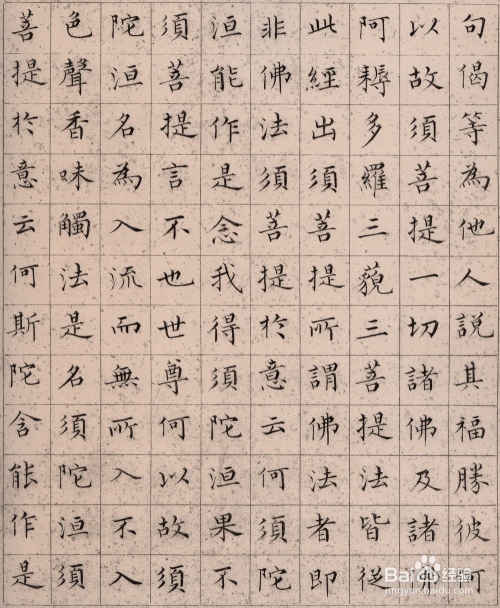 句偈等為他人說其福勝彼何
以故須菩提一切諸佛及諸佛
阿耨多羅三藐三菩提法皆從
此經出須菩提所謂佛法者即
非佛法須菩提於意云何須陀
洹能作是念我得須陀洹果不
須菩提言不也世尊何以故須
陀洹名為入流而無所入不入
色聲香味觸法是名須陀洹須
菩提於意云何斯陀含能作是
Baidu经验
jingyan.baidu.com